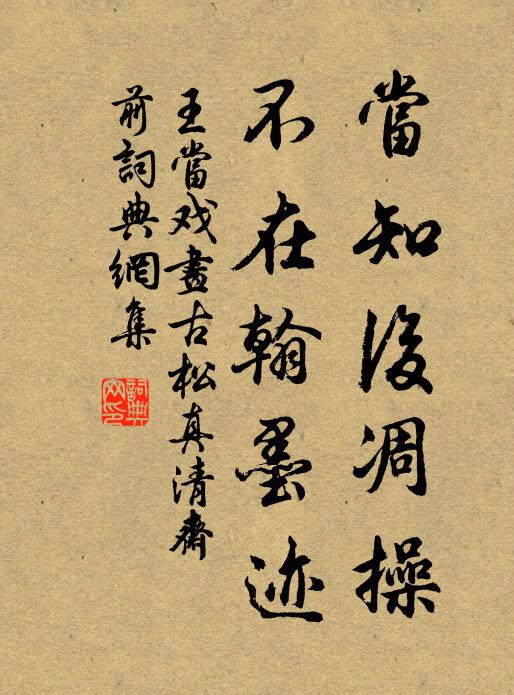 當知後凋操
不在翰墨迹
王當戏畫古松真清齋
前詞典網集
詞典網印